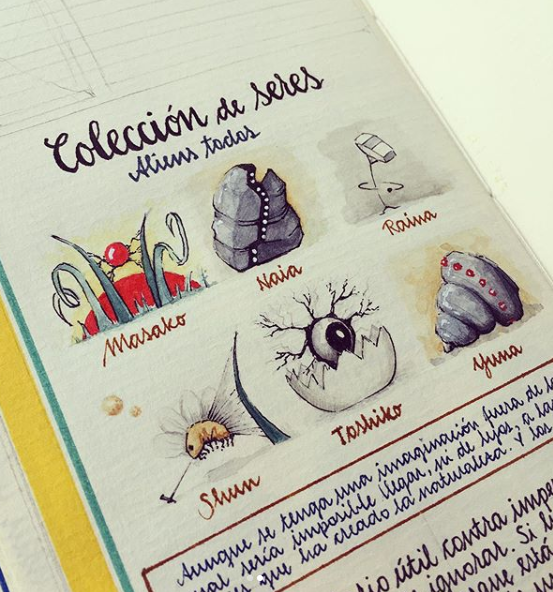 Colección de seres
Aliens todos
Masako
Naia
Raina
Shun
Toshiko
Yuna
Aunque se tenga una imaginación fuera de
sería imposible llegar, ni de lejos, a
que ha creado la naturaleza. Y
útil contra
ignorar. Si
que